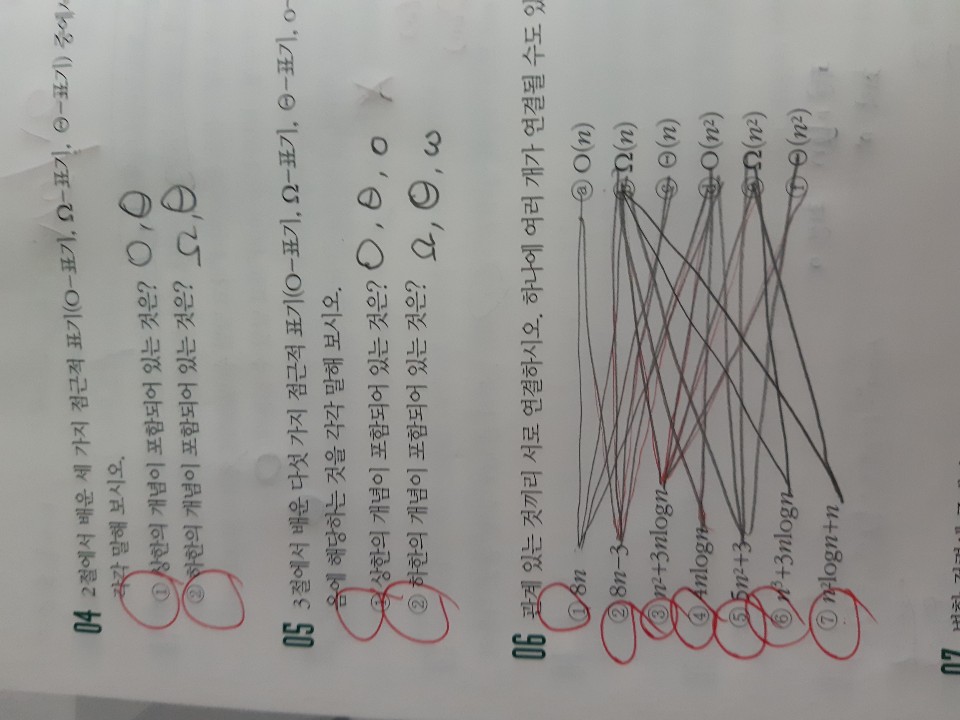 04 2절에서 배운 세 가지 점근적 표기(O-표기, Ω-표기, Θ-표기) 중에서
각각 말해 보시오.
① 상한의 개념이 포함되어 있는 것은? O, Θ
② 하한의 개념이 포함되어 있는 것은? Ω, Θ
05 3절에서 배운 다섯 가지 점근적 표기(O-표기, Ω-표기, Θ-표기, o-
음에 해당하는 것을 각각 말해 보시오.
① 상한의 개념이 포함되어 있는 것은? O, Θ, o
② 하한의 개념이 포함되어 있는 것은? Ω, Θ, ω
06 관계 있는 것끼리 서로 연결하시오. 하나에 여러 개가 연결될 수도 있
① 8n ⓐ O(n)
② 8n-3 ⓑ Ω(n)
③ n²+3nlogn ⓒ Θ(n)
④ 4nlogn ⓓ O(n²)
⑤ 5n²+3 ⓔ Ω(n²)
⑥ n³+3nlogn ⓕ Θ(n²)
⑦ n²logn+n
07